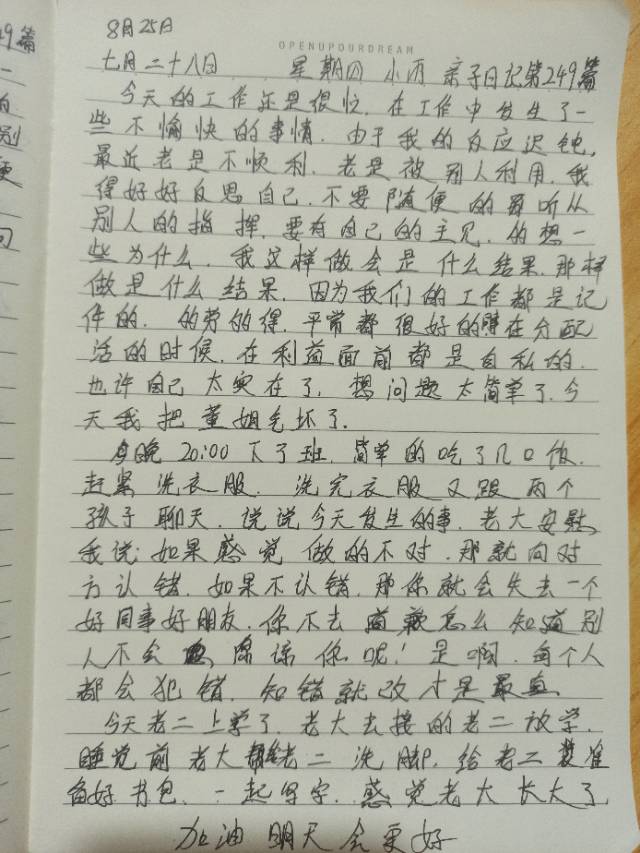 8月25日
OPENUPOURDREAM
七月二十八日. 星期四 小雨 亲子日记第249篇
今天的工作还是很忙. 在工作中发生了一
些不愉快的事情. 由于我的反应迟钝,
最近老是不顺利. 老是被别人利用. 我
得好好反思自己. 不要随便的听从
别人的指挥. 要有自己的主见. 的想一
些为什么. 我这样做会是什么结果. 那样
做是什么结果. 因为我们的工作都是记
件的. 的劳的得. 平常都很好的 在分配
活的时候. 在利益面前都是自私的.
也许自己太实在了. 想问题太简单了. 今
天我把董姐气坏了.
今晚20:00下了班. 简单的吃了几口饭.
赶紧洗衣服. 洗完衣服又跟两个
孩子聊天. 说说今天发生的事. 老大安慰
我说: 如果感觉做的不对. 那就向对
方认错. 如果不认错. 那你就会失去一个
好同事好朋友. 你不去道歉怎么知道别
人不会原谅你呢! 是啊. 每个人
都会犯错. 知错就改才是最真
今天老二上学了. 老大去接的老二放学.
睡觉前老大帮老二洗脚. 给老二准
备好书包. 一起写字. 感觉老大长大了.
加油 明天会更好
49篇
一
自
别
便